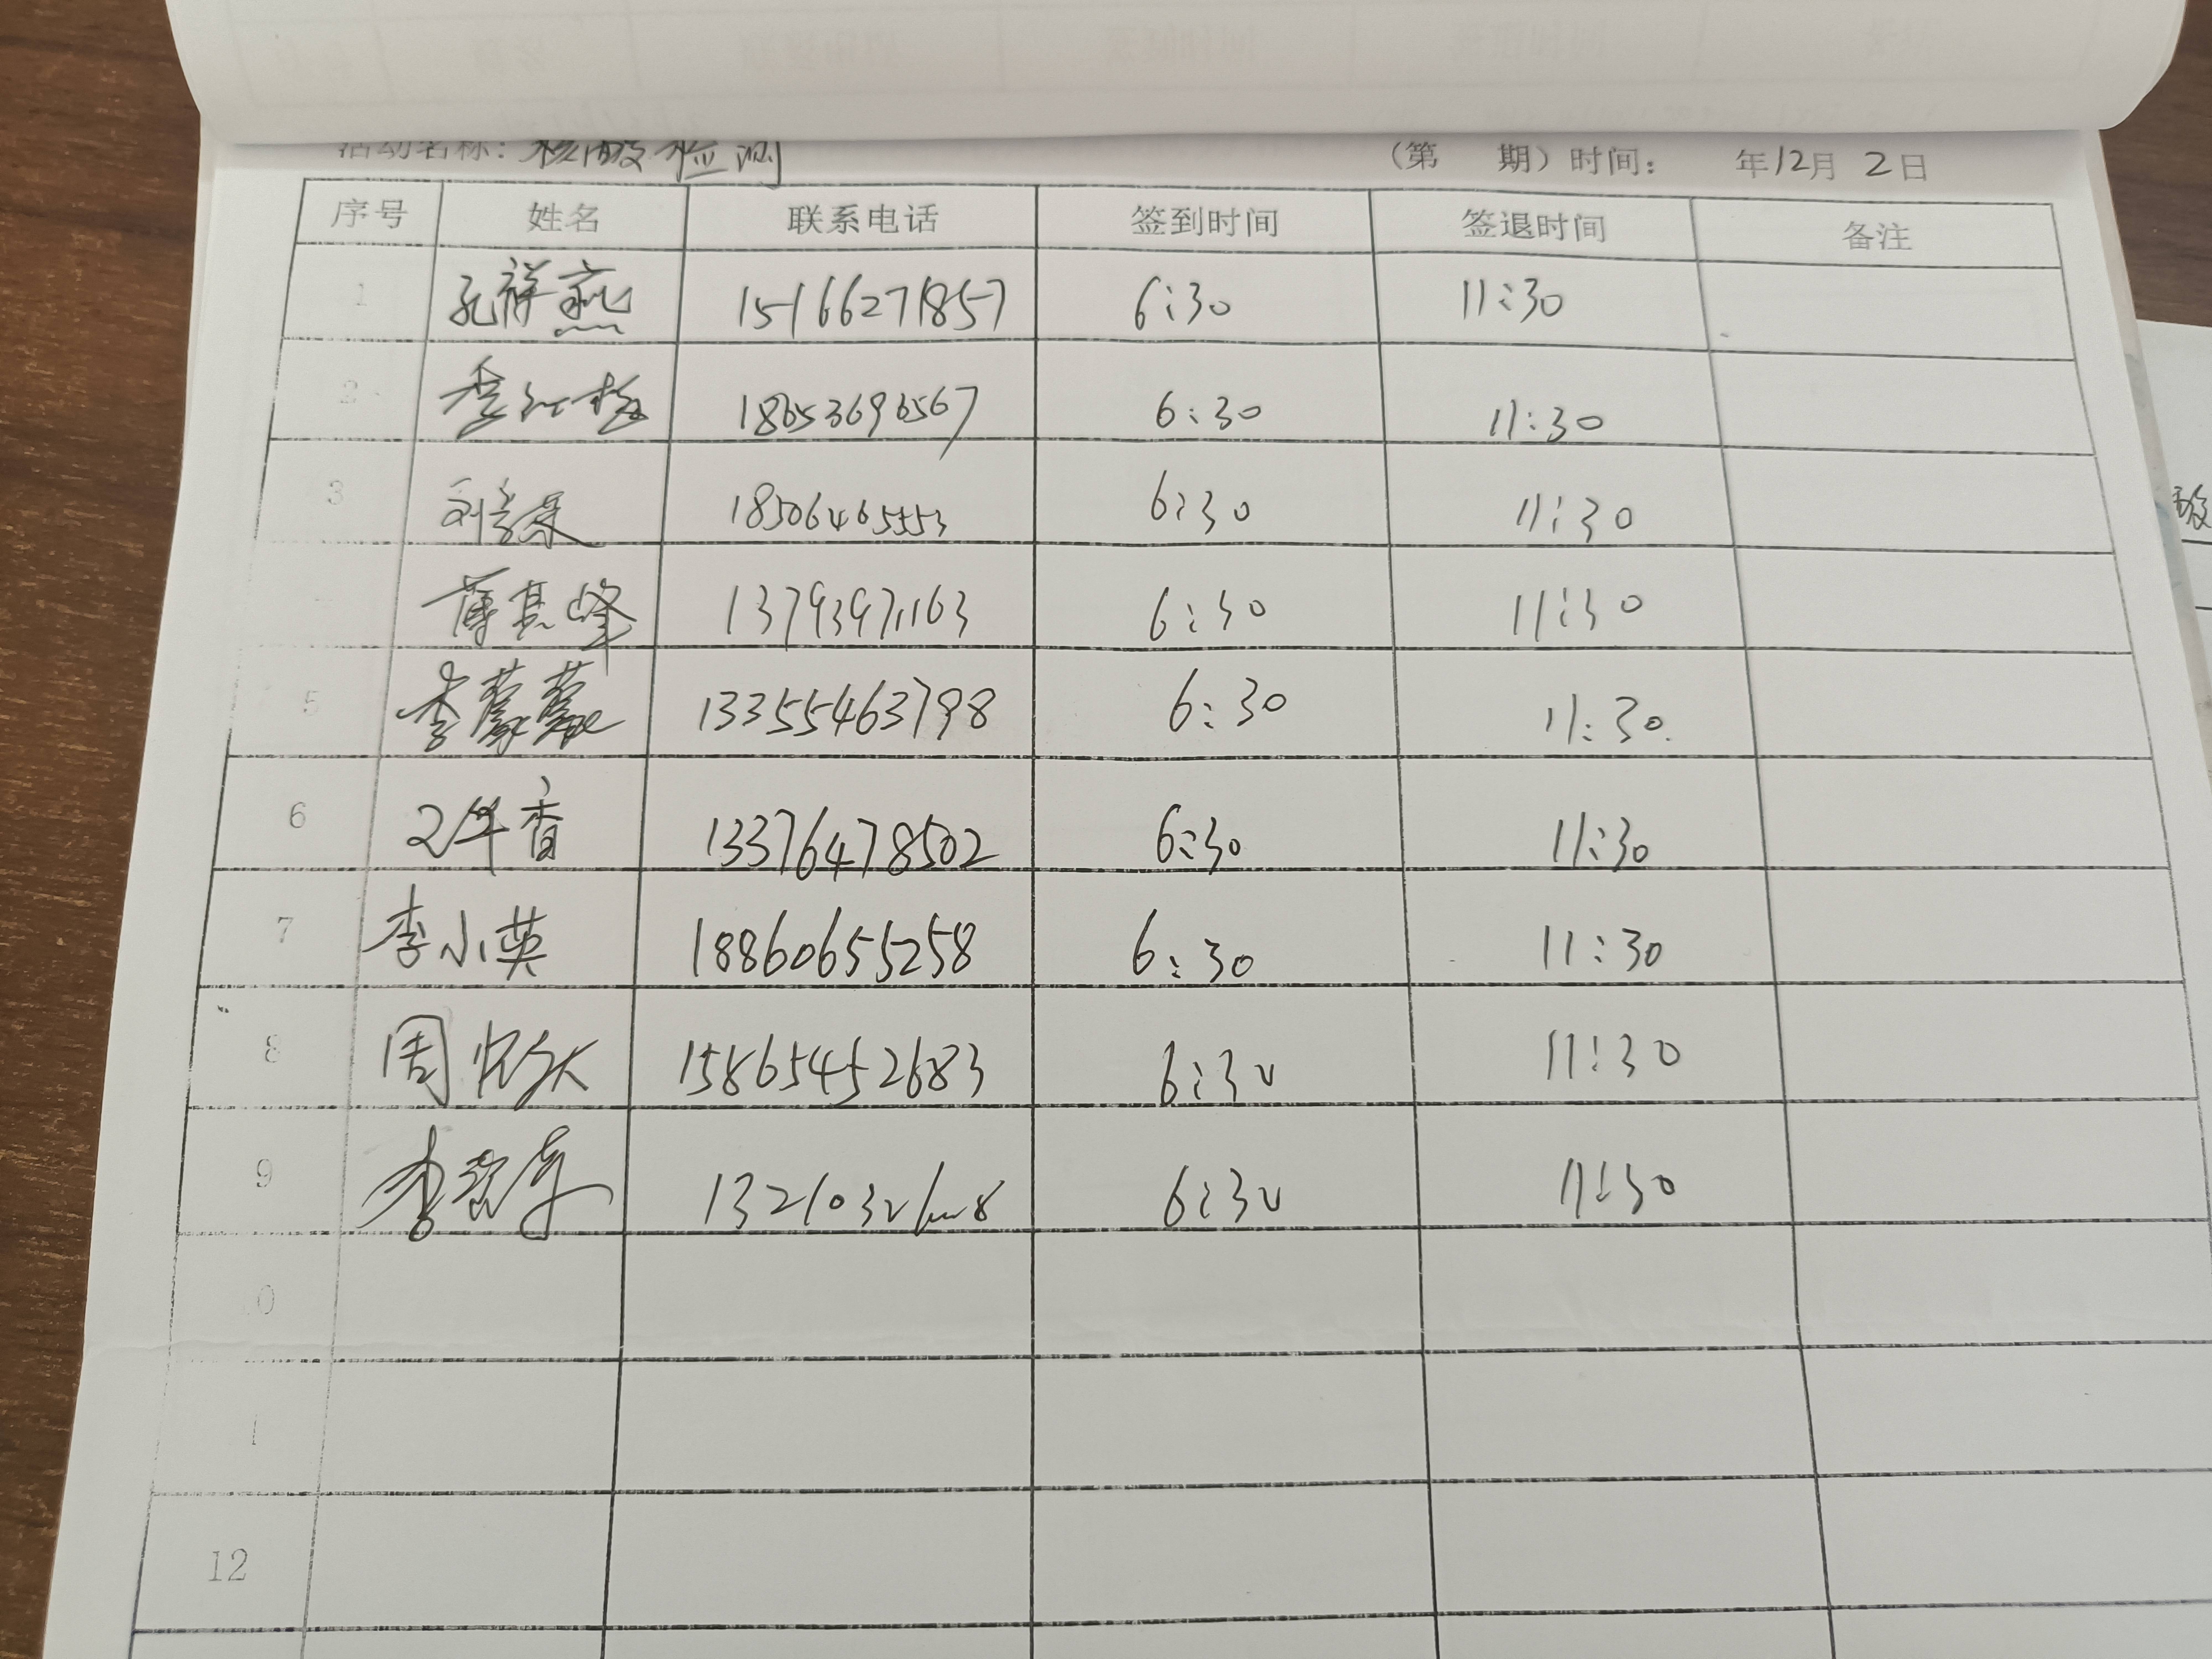 活动名称：核酸检测 （第 期）时间： 年12月2日
序号 姓名 联系电话 签到时间 签退时间 备注
1 孔祥燕 15166271857 6:30 11:30
2 李红梅 18653696567 6:30 11:30
3 18506465553 6:30 11:30
薄其峰 13793971163 6:30 11:30
5 李蒙蒙 13355463798 6:30 11:30
6 香 13376478502 6:30 11:30
7 李小英 18860655258 6:30 11:30
8 周 15865452683 6:30 11:30
9 李 6:30 11:30
0
1
12